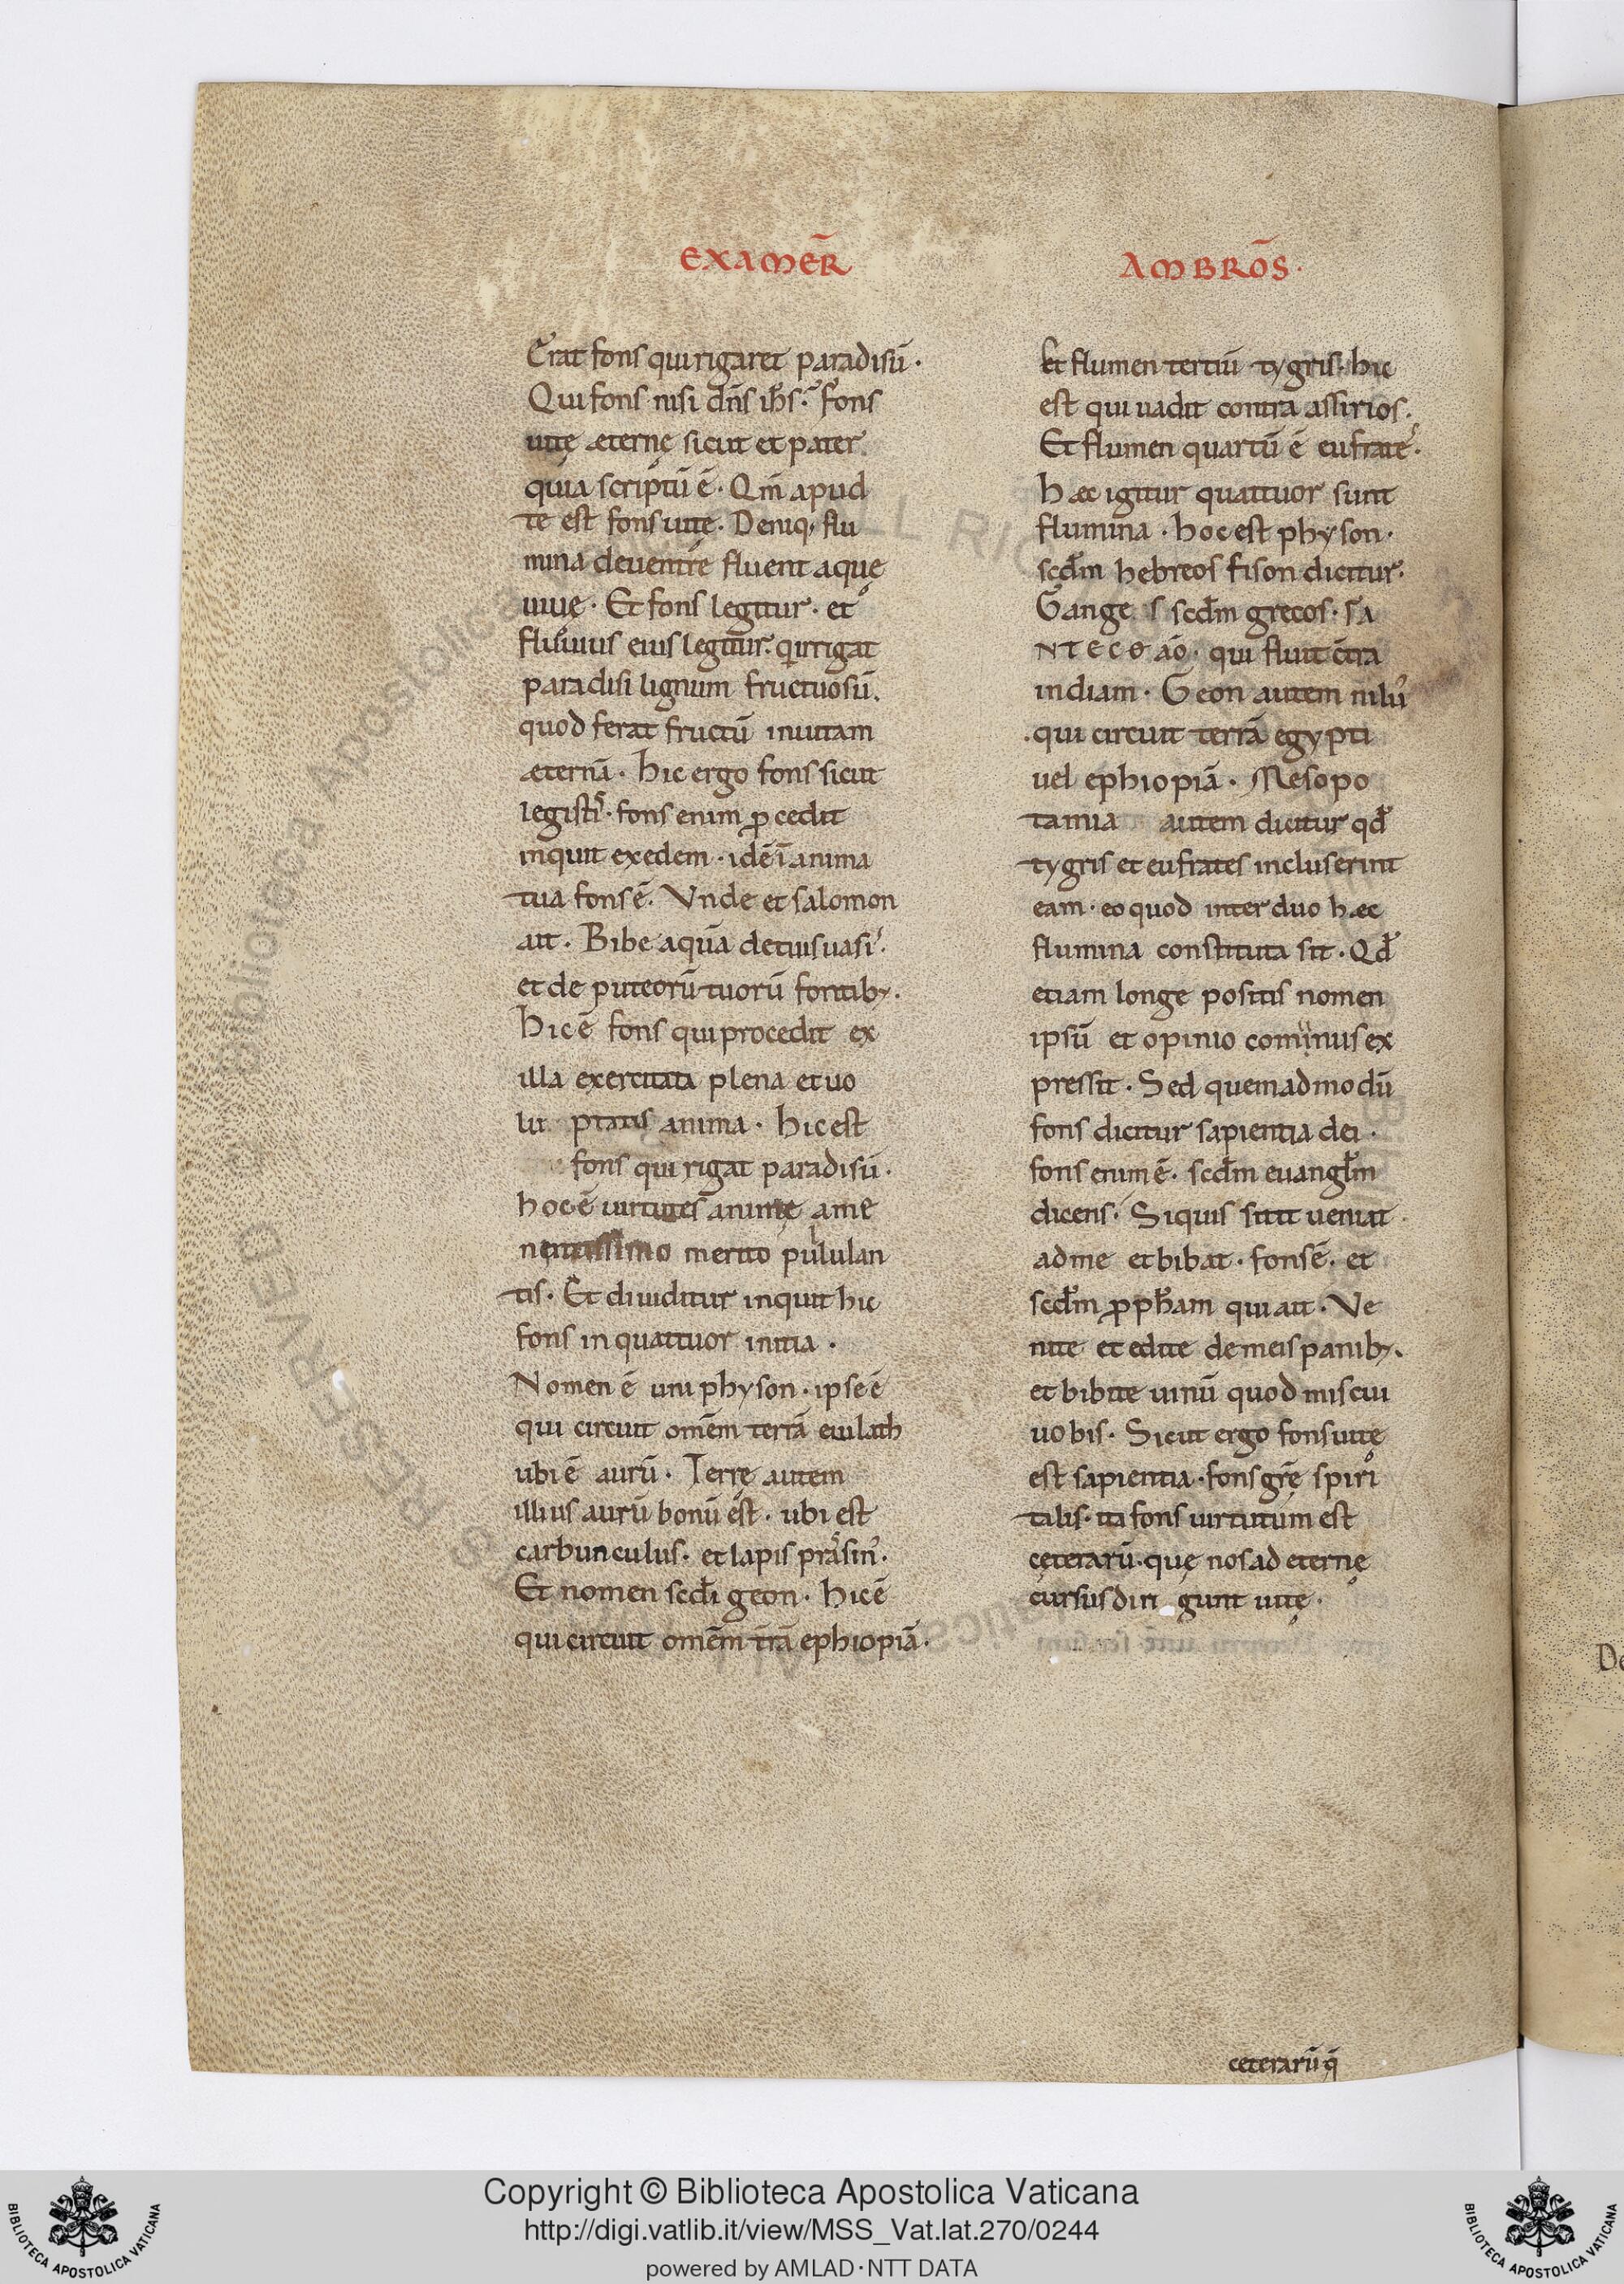 EXAMER̄
AMBRO̅S·
Erat fons qui rigaret paradisū·
Qui fons nisi dn̄s ih̄s· Fons
uitę æternę sicut et pater
quia scriptū ē· Qm̄ apud
te est fons uitę· Deniq; flu
mina de uentre fluent aquę
uiuę· Et fons legitur· et
fluuius eius legitur· q irrigat
paradisi lignum fructuosū·
quod ferat fructū in uitam
æternā· hic ergo fons sicut
legisti· fons enim ꝓcedit
inquit ex edem· idē ī anima
tua fons ē· Vnde et salomon
ait· Bibe aquā de tuis uasi᷒·
et de puteorū tuorū fontib;·
hic ē fons qui procedit ex
illa exercitata plena et uo
lu ptatis anima· hic est
fons qui rigat paradisū·
hoc ē uirtutes animę ame
nentissimo merito pululan
tis· Et diuiditur inquit hic
fons in quattuor initia·
Nomen ē uni physon· ipse ē
qui circuit omēm terrā euilath
ubi ē aurū· Terrę autem
illius aurū bonū est· ubi est
carbunculus· et lapis prasin᾽·
Et nomen scd̄i geon· hic ē
qui circuit omēm t̄rā ephiopiā·
Et flumen tertiū tygris· hic
est qui uadit contra assirios·
Et flumen quartū ē eufrate᷒·
hæc igitur quattuor sunt
flumina· hoc est physon·
scd̄m hebreos fison dicitur·
Gange s scd̄m grecos·
qui fluit c̄tra
indiam· Geon autem nilu᷒
qui circuit terrā egypti
uel ephiopiā· Mesopo
tamia autem dicitur qd̄
tygris et eufrates incluserint
eam· eo quod inter duo hæc
flumina constituta sit· Qd̄
etiam longe positis nomen
ipsū et opinio cominus ex
pressit· Sed quemadmodū
fons dicitur sapientia dei·
fons enim ē· scd̄m euangl̄m
dicens· Siquis sitit ueniat
ad me et bibat· fons ē· et
scd̄m ꝓph̄am qui ait· Ve
nite et edite de meis panib;·
et bibite uinū quod miscui
uobis· Sicut ergo fons uitę
est sapientia· fons gr̄ę spiri
talis· ita fons uirtutum est
cęterarū· quę nos ad eternę
cursus diri gunt uitę·
ceterarū q̄
De
Copyright © Biblioteca Apostolica Vaticana
http://digi.vatlib.it/view/MSS_Vat.lat.270/0244
powered by AMLAD·NTT DATA
BIBLIOTECA APOSTOLICA VATICANA
BIBLIOTECA APOSTOLICA VATICANA